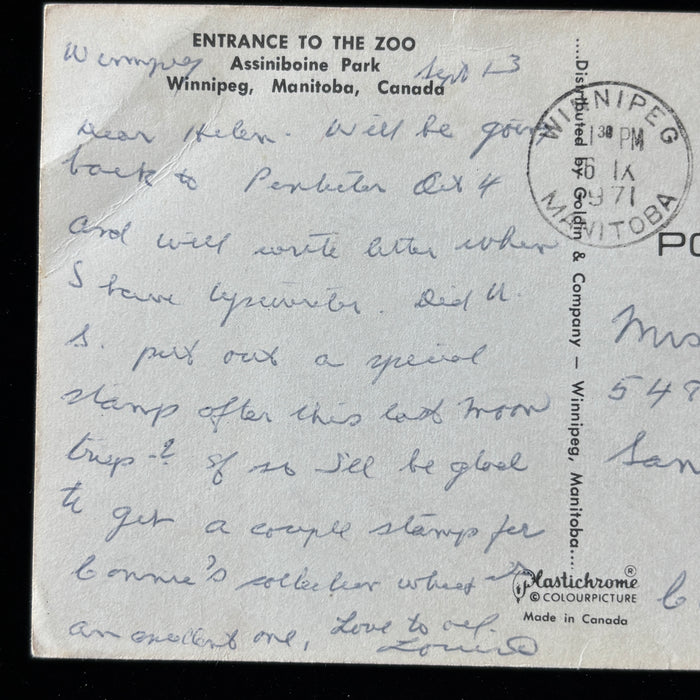 ENTRANCE TO THE ZOO
Assiniboine Park
Winnipeg, Manitoba, Canada
Winnipeg Sept 13
Dear Helen. Will be going
back to Oct 4
and will write letter when
I have typewriter. Did U.
S. put out a special
stamp after this last moon
trip-? If so I'll be glad
to get a couple stamps for
Connie's collection
an excellent one. Love to all.
Louise
WINNIPEG
1 30 PM
IX
1971
MANITOBA
Distributed by Goldin & Company — Winnipeg, Manitoba....
PO
Mrs
549
San
C
Plastichrome®
© COLOURPICTURE
Made in Canada